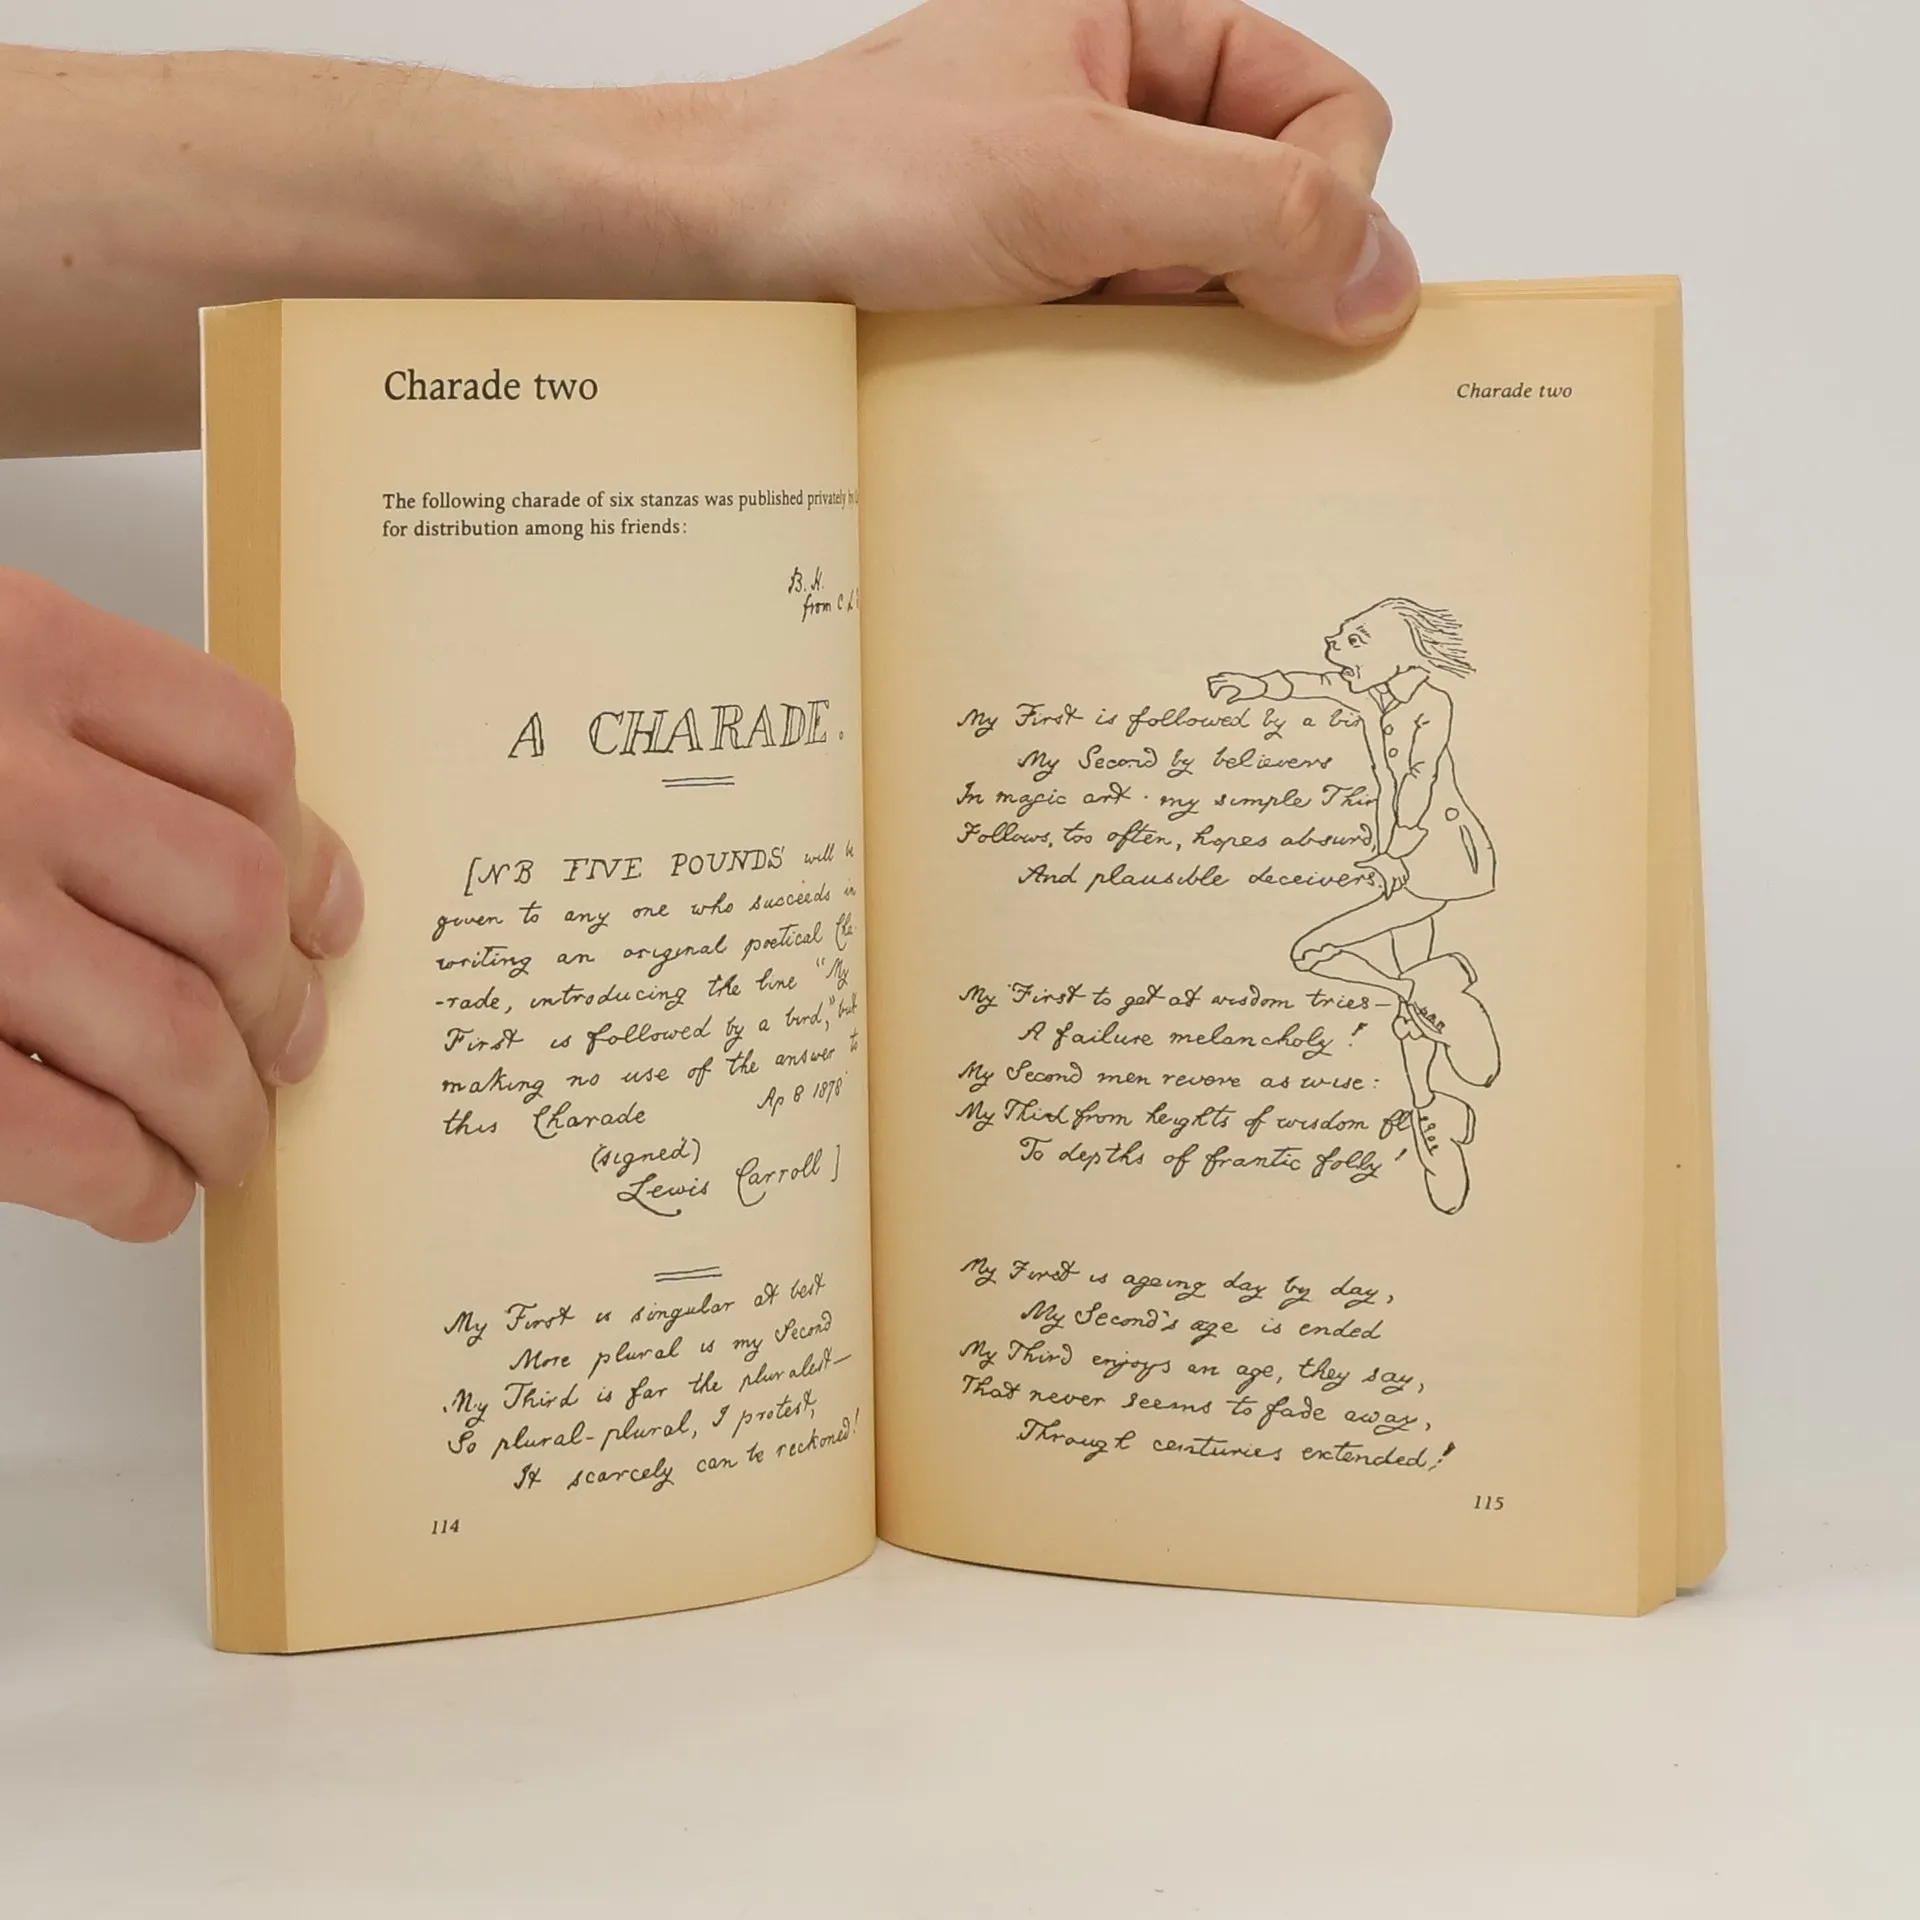 Charade two
The following charade of six stanzas was published privately
for distribution among his friends:
B. H.
from C L
A CHARADE.
[NB FIVE POUNDS will be
given to any one who succeeds in
writing an original poetical Cha-
-rade, introducing the line "My
First is followed by a bird," but
making no use of the answer to
this Charade Ap 8 1878
(signed)
Lewis Carroll]
My First is singular at best
More plural is my Second
My Third is far the pluralest—
So plural-plural, I protest,
It scarcely can be reckoned!
114
Charade two
My First is followed by a bir
My Second by believers
In magic art : my simple Thir
Follows, too often, hopes absurd,
And plausible deceivers.
My First to get at wisdom tries—
A failure melancholy!
My Second men revere as wise:
My Third from heights of wisdom fl
To depths of frantic folly!
My First is ageing day by day,
My Second's age is ended
My Third enjoys an age, they say,
That never seems to fade away,
Through centuries extended!
115